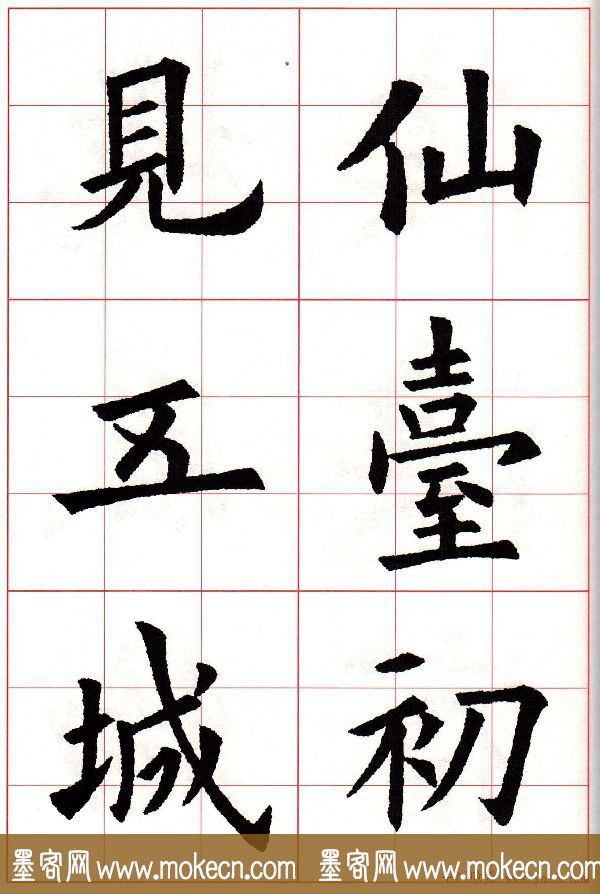 仙臺初
見五城
墨客网 www.mokecn.com 墨客网 www.mokecn.com